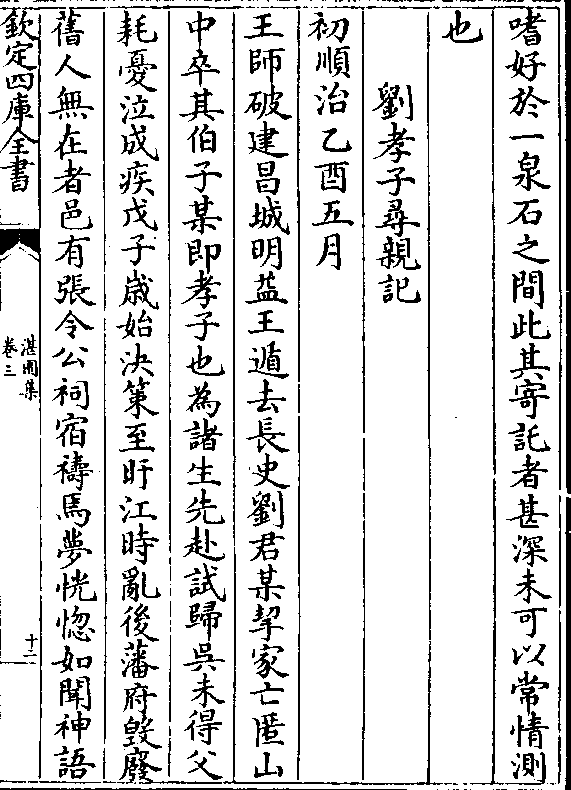 嗜好於一泉石之間此其寄託者甚深未可以常情測
也
劉孝子尋親記
初順治乙酉五月
王師破建昌城明益王遁去長史劉君某挈家亡匿山
中卒其伯子某即孝子也為諸生先赴試歸吳未得父
耗憂泣成疾戊子歲始決策至盱江時亂後藩府毀廢
舊人無在者邑有張令公祠宿禱焉夢恍惚如聞神語
欽定四庫全書
湛園集
卷三
十二